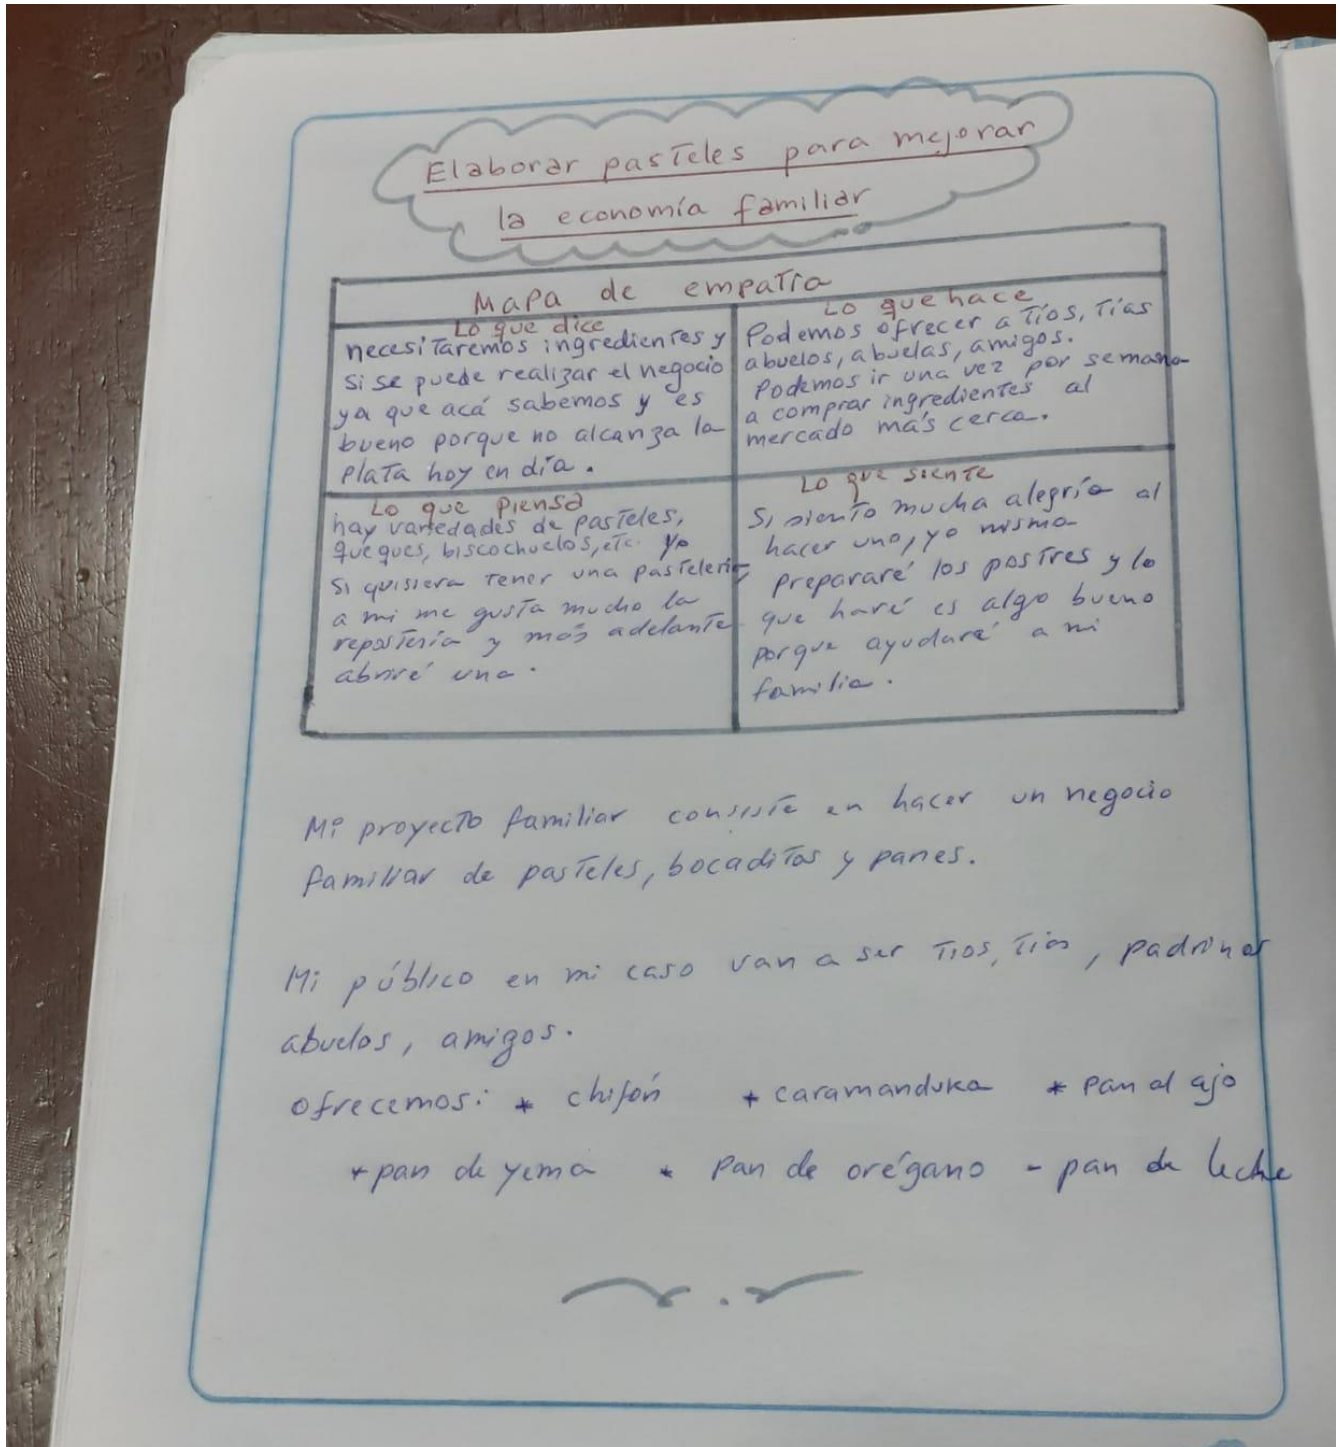 Elaborar pasteles para mejorar
la economía familiar
Mapa de empatía
Lo que dice
necesitaremos ingredientes y
si se puede realizar el negocio
ya que acá sabemos y es
bueno porque no alcanza la
plata hoy en día.
Lo que hace
Podemos ofrecer a Tíos, Tías
abuelos, abuelas, amigos.
Podemos ir una vez por semana
a comprar ingredientes al
mercado más cerca.
Lo que piensa
hay variedades de pasteles,
queques, biscochuelos, etc. yo
si quisiera tener una pastelería
a mi me gusta mucho la
repostería y más adelante
abriré una.
Lo que siente
Si siento mucha alegría al
hacer uno, yo misma
prepararé los postres y lo
que haré es algo bueno
porque ayudaré a mi
familia.
Mi proyecto familiar consiste en hacer un negocio
familiar de pasteles, bocaditos y panes.
Mi público en mi caso van a ser Tíos, Tías, padrinos
abuelos, amigos.
Ofrecemos: * chifón * caramanduka * Pan al ajo
* pan de yema * Pan de orégano - pan de leche